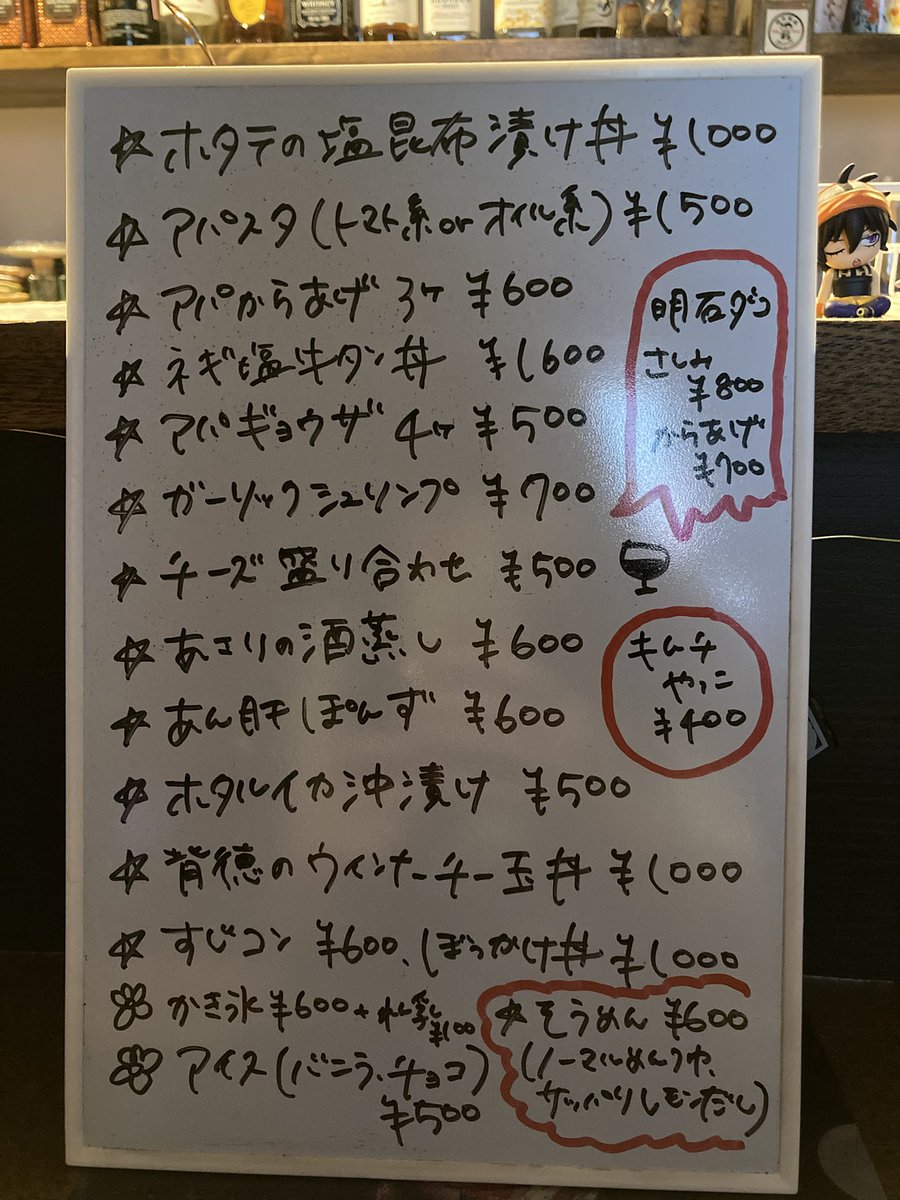 ☆ ホタテの塩昆布漬け丼 ¥1000
☆ アパスタ(トマト系orオイル系) ¥1500
☆ アパからあげ 3ヶ ¥600
☆ ネギ塩牛タン丼 ¥1600
☆ アパギョウザ 4ヶ ¥500
☆ ガーリックシュリンプ ¥700
☆ チーズ盛り合わせ ¥500
☆ あさりの酒蒸し ¥600
☆ あん肝ぽんず ¥600
☆ ホタルイカ沖漬け ¥500
☆ 背徳のウィンナーチー玉丼 ¥1000
☆ すじコン ¥600、ぼっかけ丼 ¥1000
かき氷 ¥600+れん乳
¥100
アイス(バニラ、チョコ)
¥500
明石ダコ
さしみ
¥800
からあげ
¥700
キムチ
やっこ
¥400
☆ そうめん ¥600
(ノーマルめんつゆ、
サッパリレモンだし)